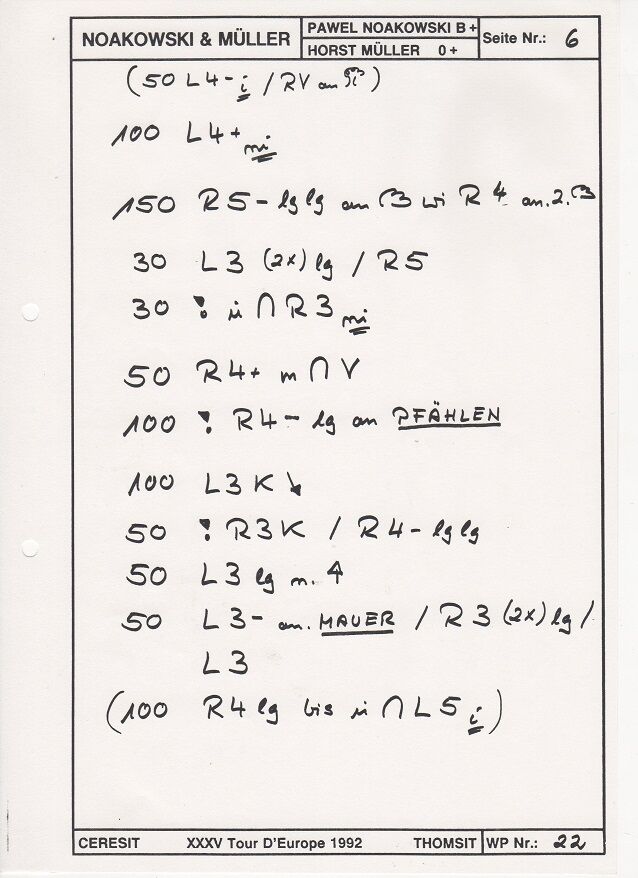 NOAKOWSKI & MÜLLER
PAWEL NOAKOWSKI B+
HORST MÜLLER 0+
Seite Nr.: 6
(50 L4- i / RV an )
100 L4+ mi
150 R5- lglg an wi R4 an. 2.
30 L3 (2x) lg / R5
30 ! ii ∩ R3 mi
50 R4+ m ∩ V
100 ! R4- lg an PFÄHLEN
100 L3K ↘
50 ! R3K / R4- lglg
50 L3 lg n. ↑
50 L3- an. MAUER / R3 (2x) lg /
L3
(100 R4 lg bis ii ∩ L5 i)
CERESIT XXXV Tour D'Europe 1992 THOMSIT WP Nr.: 22